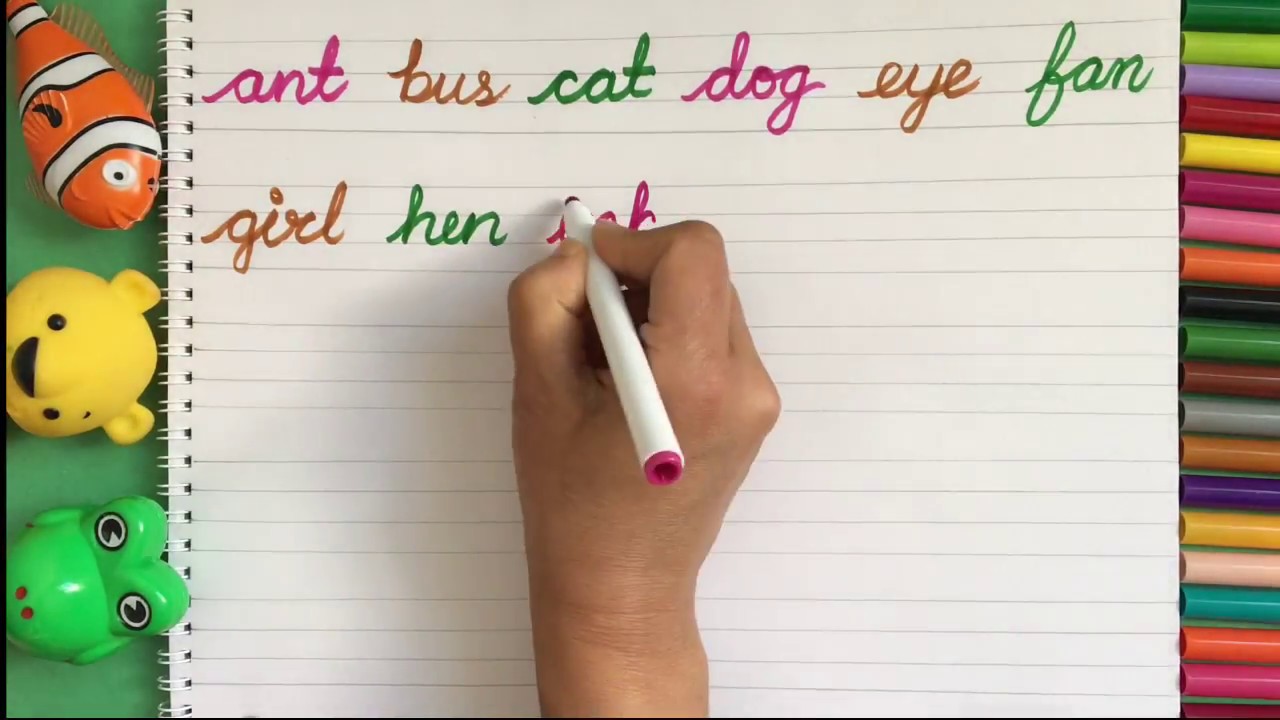 ant bus cat dog eye fan
girl hen